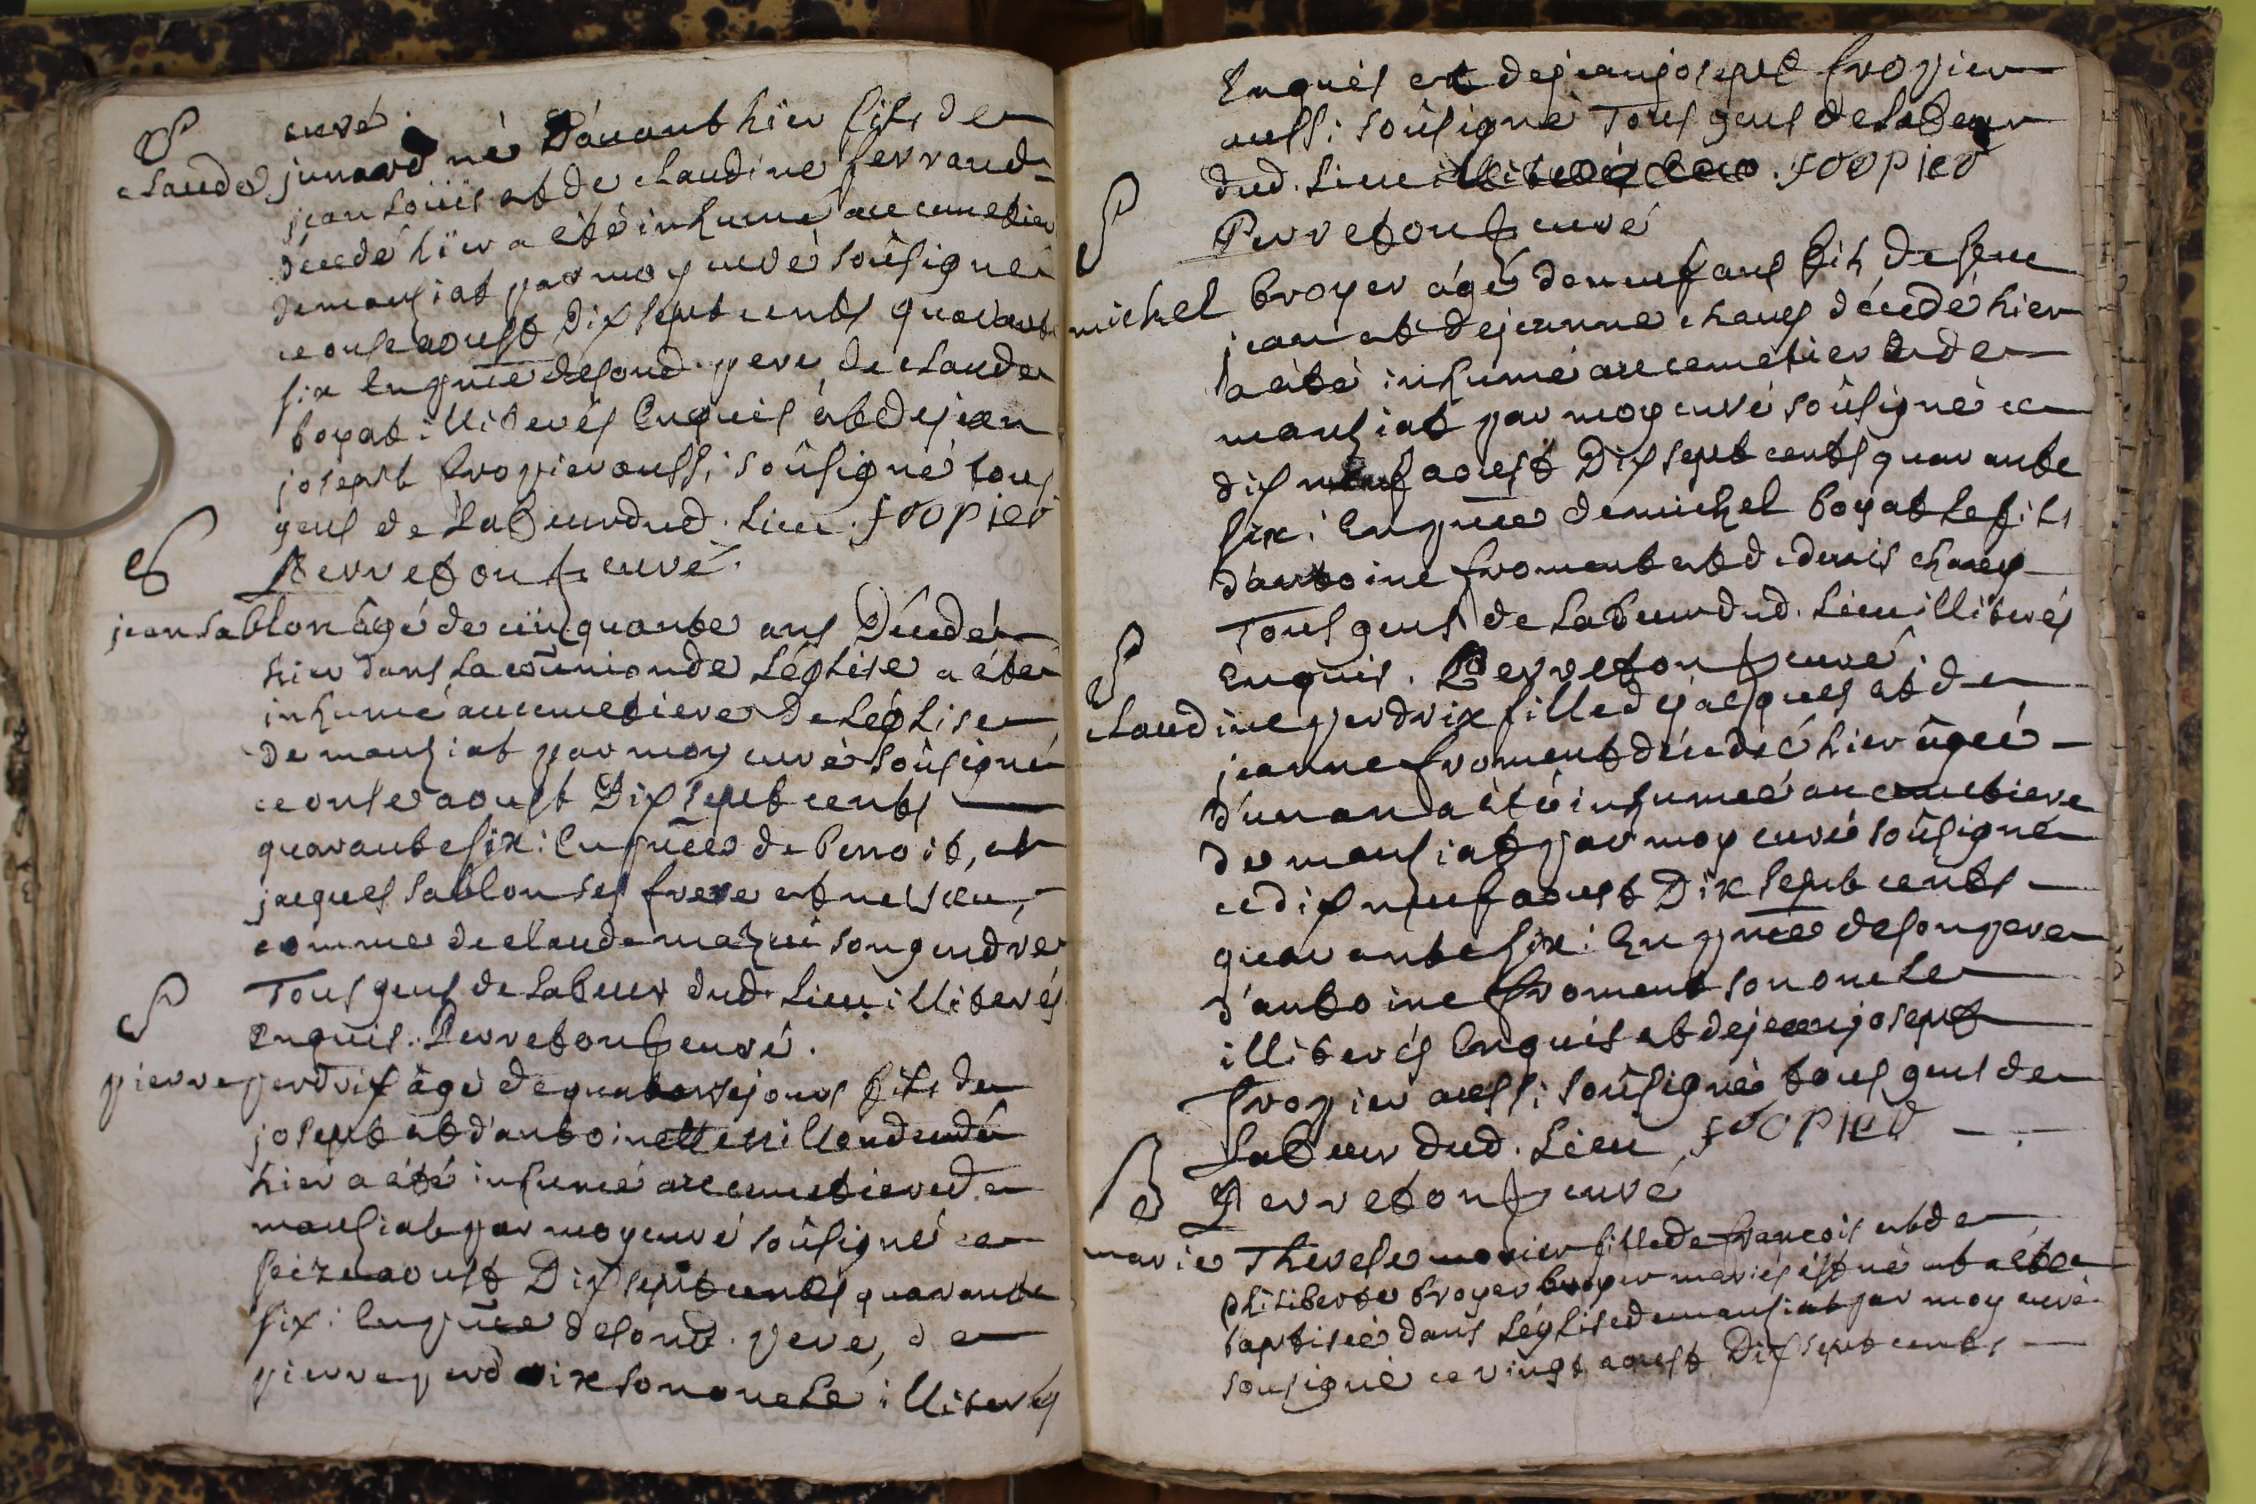 curé.
S
claude junard né d'auant hier fils de
jean Loüis et de claudine ferrand
décédé hïer a été inhumé au cemetier
de mansiat par moy curé soûsigné
ce onse aoust Dix sept cents quarante
six En p̄nce de sond. pere, de claude
boyat illiterés Enquis et de jean
joseph fropier aussi soûsigné tous
gens de Labeur dud. Lieu. fropier
Perretonf curé.
S
jean sablon âgé de cinquante ans Décédé
hier dans La com̄union de L'église a été
inhumé au cemetiere de L'église
de mansiat par moy curé soûsigné
ce onse aoust Dix sept cents
quarante six : En p̄nce de benoit, et
jacques sablon ses frere et neveu,
comme de claude mazuï son gendre
Tous gens de Labeur dud. Lieu illiterés
Enquis. Perretonf curé.
S
pierre perdrix âgé de quatorse jours fils de
joseph et d'antoinette décédé
hier a été inhumé au cemetiere de
mansiat par moy curé soûsigné ce
seize aoust Dix sept cents quarante
six : En p̄nce de sond. pere, de
pierre perdrix son oncle illiterés
Enquis et de jean joseph fropier
aussi soûsigné Tous gens de Labeur
dud. Lieu . fropier
Perretonf curé
S
michel broyer âgé de neuf ans fils de feu
jean et de jeanne chanel décédé hier
a été inhumé au cemetier de
mansiat par moy curé soûsigné ce
dix neuf aoust Dix sept cents quarante
six : En p̄nce de michel boyat Le fils
d'antoine froment et de denis chanel
Tous gens de Labeur dud. Lieu illiterés
Enquis. Perretonf curé.
S
claudine perdrix fille de jacques et de
jeanne froment décédée hier âgée
d'un an a été inhumée au cemetiere
de mansiat par moy curé soûsigné
ce dix neuf aoust Dix sept cents
quarante six : En p̄nce de son pere
d'antoine froment son oncle
illiterés Enquis et de jean joseph
fropier aussi soûsigné tous gens de
Labeur dud. Lieu fropier
Perretonf curé
B
marie Therese monier fille de françois et de
philiberte broyer mariés est né et a été
baptisée dans L'église de mansiat par moy curé
sousigné ce vingt aoust Dix sept cents